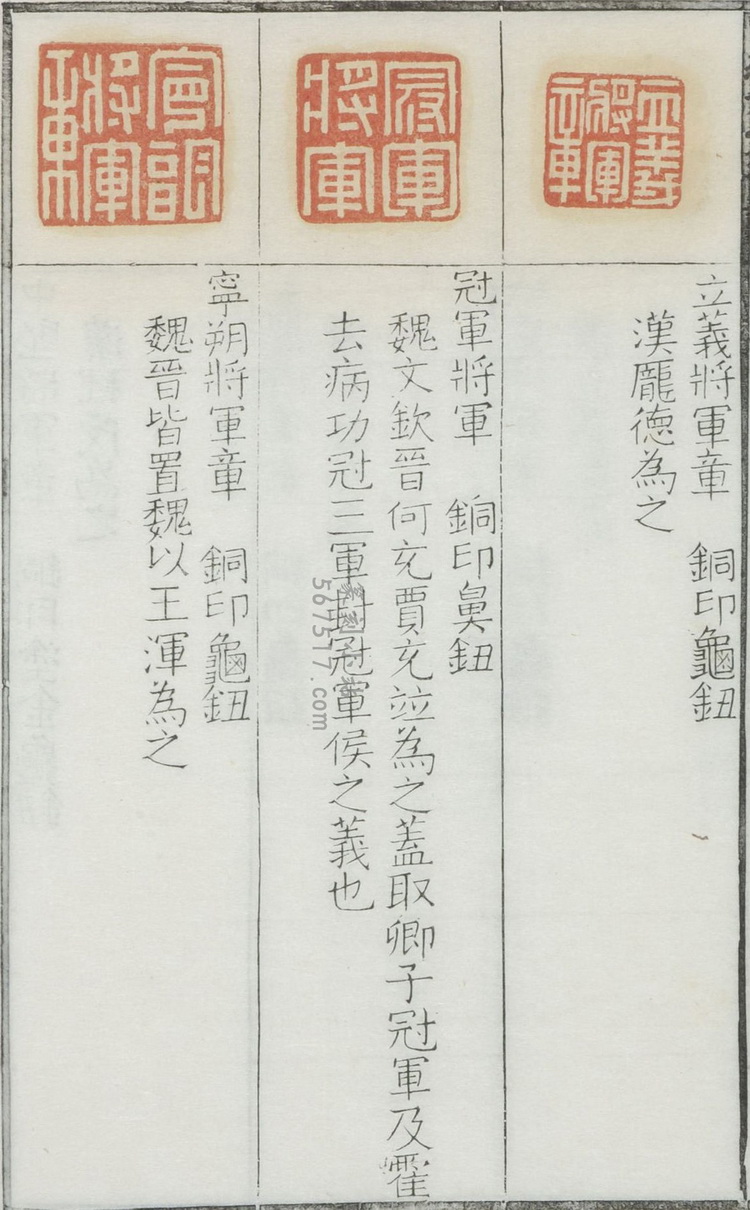 立義將軍章
冠軍將軍
寧朔將軍章
立義將軍章　銅印龜鈕
漢龐德為之
冠軍將軍　銅印鼻鈕
魏文欽晉何充賈充竝為之蓋取卿子冠軍及霍
去病功冠三軍封冠軍侯之義也
寧朔將軍章　銅印龜鈕
魏晉皆置魏以王渾為之
567517.com